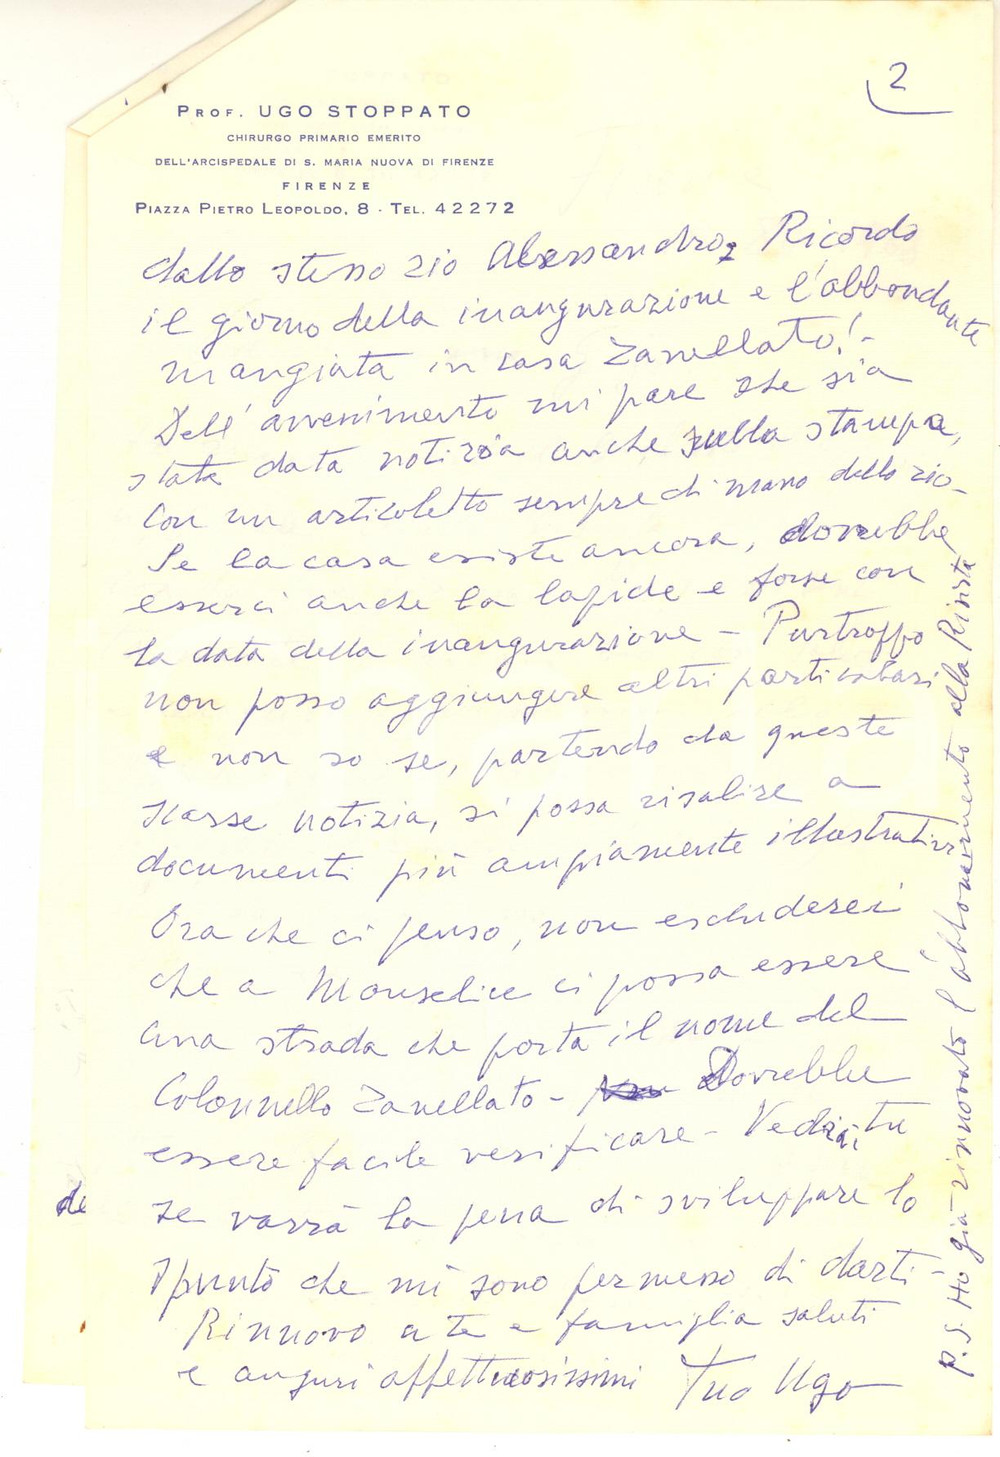 2
PROF. UGO STOPPATO
CHIRURGO PRIMARIO EMERITO
DELL'ARCISPEDALE DI S. MARIA NUOVA DI FIRENZE
FIRENZE
PIAZZA PIETRO LEOPOLDO, 8 - TEL. 42272
dallo stesso zio Alessandro, Ricordo
il giorno della inaugurazione e l'abbondante
mangiata in casa Zanellato! -
Dell'avvenimento mi pare che sia
stata data notizia anche sulla stampa,
con un articoletto sempre di mano dello zio -
Se la casa esiste ancora, dovrebbe
esserci anche la lapide e forse con
la data della inaugurazione - Purtroppo
non posso aggiungere altri particolari
e non so se, partendo da queste
scarse notizia, si possa risalire a
documenti più ampiamente illustrativi
Ora che ci penso, non escluderei
che a Monselice ci possa essere
una strada che porta il nome del
Colonnello Zanellato - Dovrebbe
essere facile verificare - Vedrai tu
se varrà la pena di sviluppare lo
spunto che mi sono permesso di darti -
Rinnovo a te e famiglia saluti
e auguri affettuosissimi Tuo Ugo
de
P.S. Ho già rinnovato l'abbonamento alla Rivista